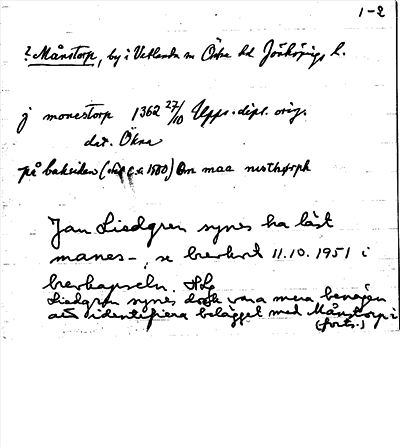 1-2
? Månstorp, by i Vetlanda sn Östra hd Jönköpings l.
j monestorp 1362 27/10 Upps. dipl. orig.
dat. Ökna
på baksidan (hd c:a 1500) Om maa
Jan Liedgren synes ha läst
manes-, se brevkort 11.10.1951 i
brevkapseln.
Liedgren synes dock vara mera benägen
att identifiera belägget med Månstorp i
(forts.)